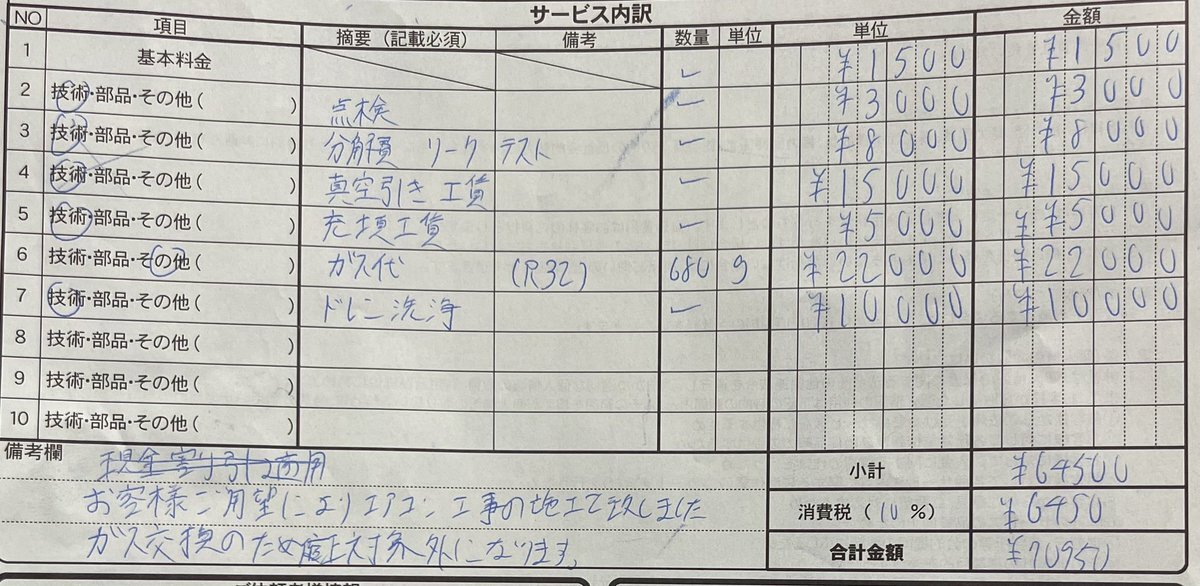 サービス内訳
NO 項目 摘要（記載必須） 備考 数量 単位 単位 金額
1 基本料金 ¥1500 ¥1500
2 技術・部品・その他（ ） 点検 ¥3000 ¥3000
3 技術・部品・その他（ ） 分解費 リークテスト ¥8000 ¥8000
4 技術・部品・その他（ ） 真空引き工賃 ¥15000 ¥15000
5 技術・部品・その他（ ） 充填工賃 ¥5000 ¥5000
6 技術・部品・その他（ ） ガス代 (R32) 680 g ¥22000 ¥22000
7 技術・部品・その他（ ） ドレン洗浄 ¥10000 ¥10000
8 技術・部品・その他（ ）
9 技術・部品・その他（ ）
10 技術・部品・その他（ ）
備考欄 現金割引き適用
小計 ¥64500
お客様ご用望によりエアコン工事の施工て致しました
消費税（10%） ¥6450
ガス交換のため 対象外になります。
合計金額 ¥70950